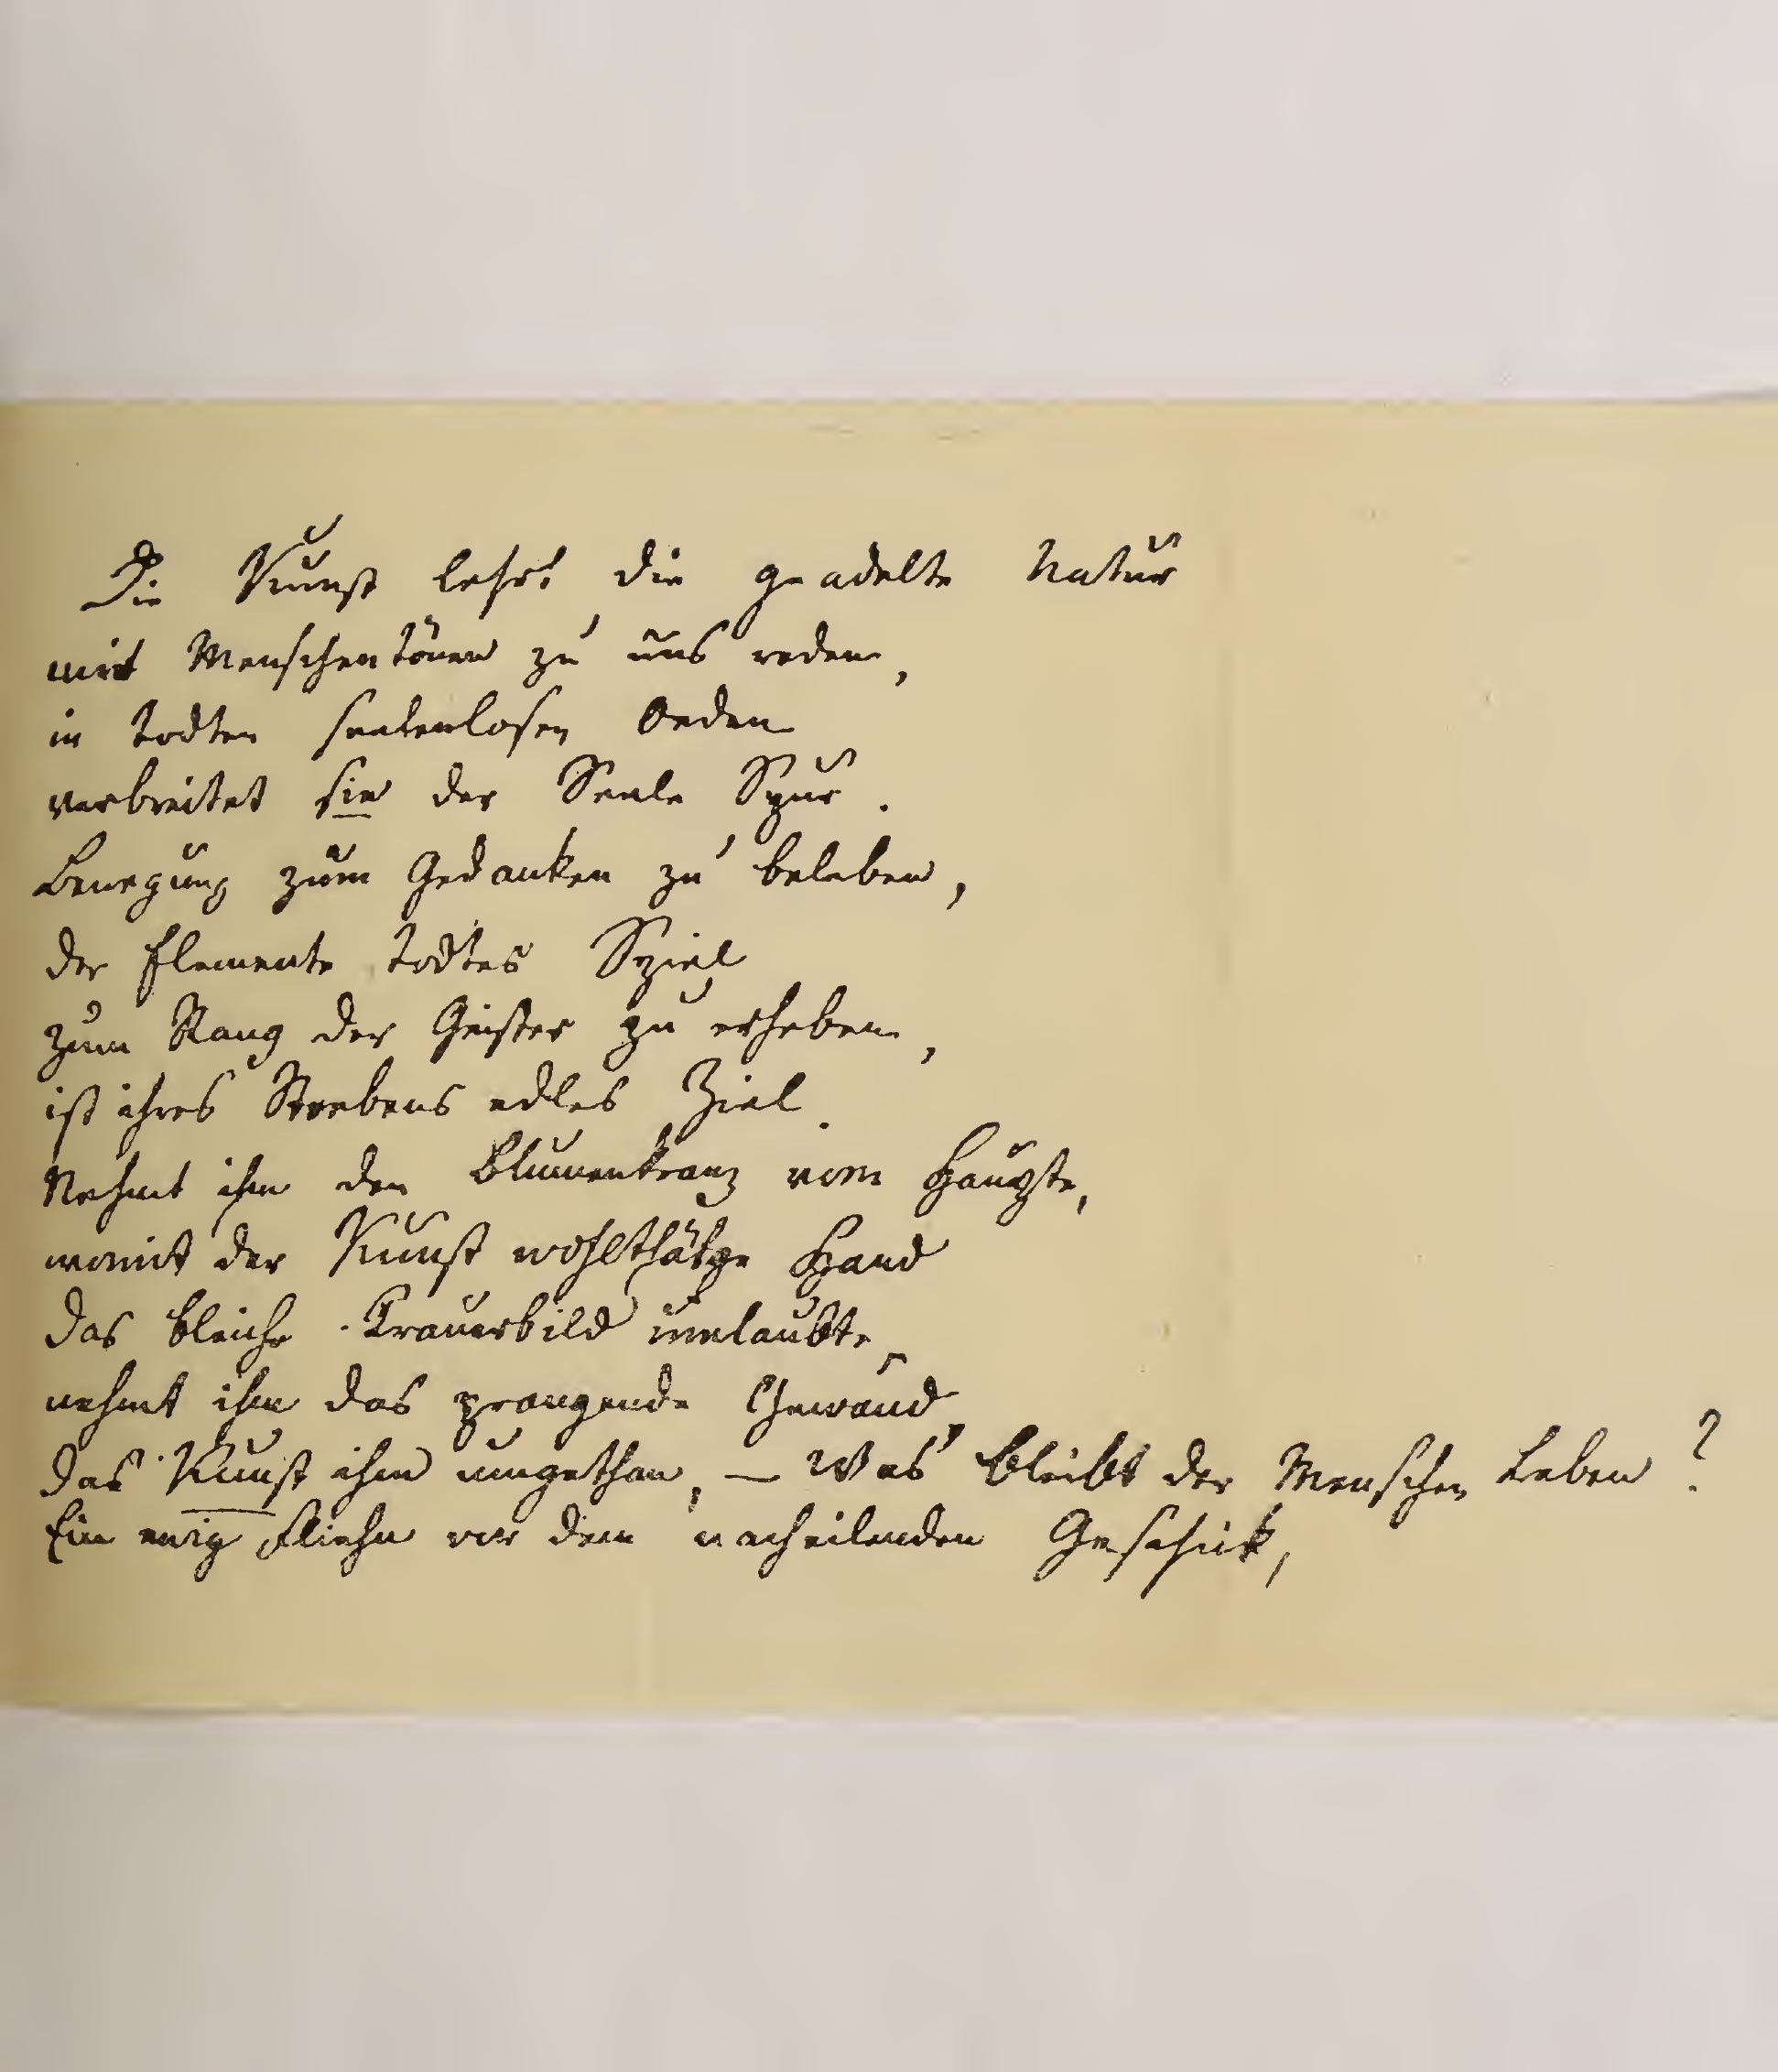 Die Kunst lehrt die geadelte Natur
mit Menschentönen zu uns reden,
in todten seelenlosen Oeden
verbreitet sie der Seele Spur.
Bewegung zum Gedanken zu beleben,
der Elemente todtes Spiel
zum Rang der Geister zu erheben,
ist ihres Strebens edles Ziel.
Nehmt ihm den Blumenkranz vom Haupte,
womit der Kunst wohlthätge Hand
das bleiche Trauerbild umlaubte,
nehmt ihm das prangende Gewand,
das Kunst ihm umgethan, – Was bleibt der Menschen Leben?
Ein ewig Fliehn vor dem nacheilenden Geschick,